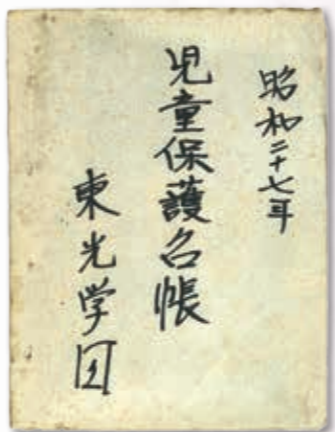 昭和二十七年
児童保護名帳
東光学园